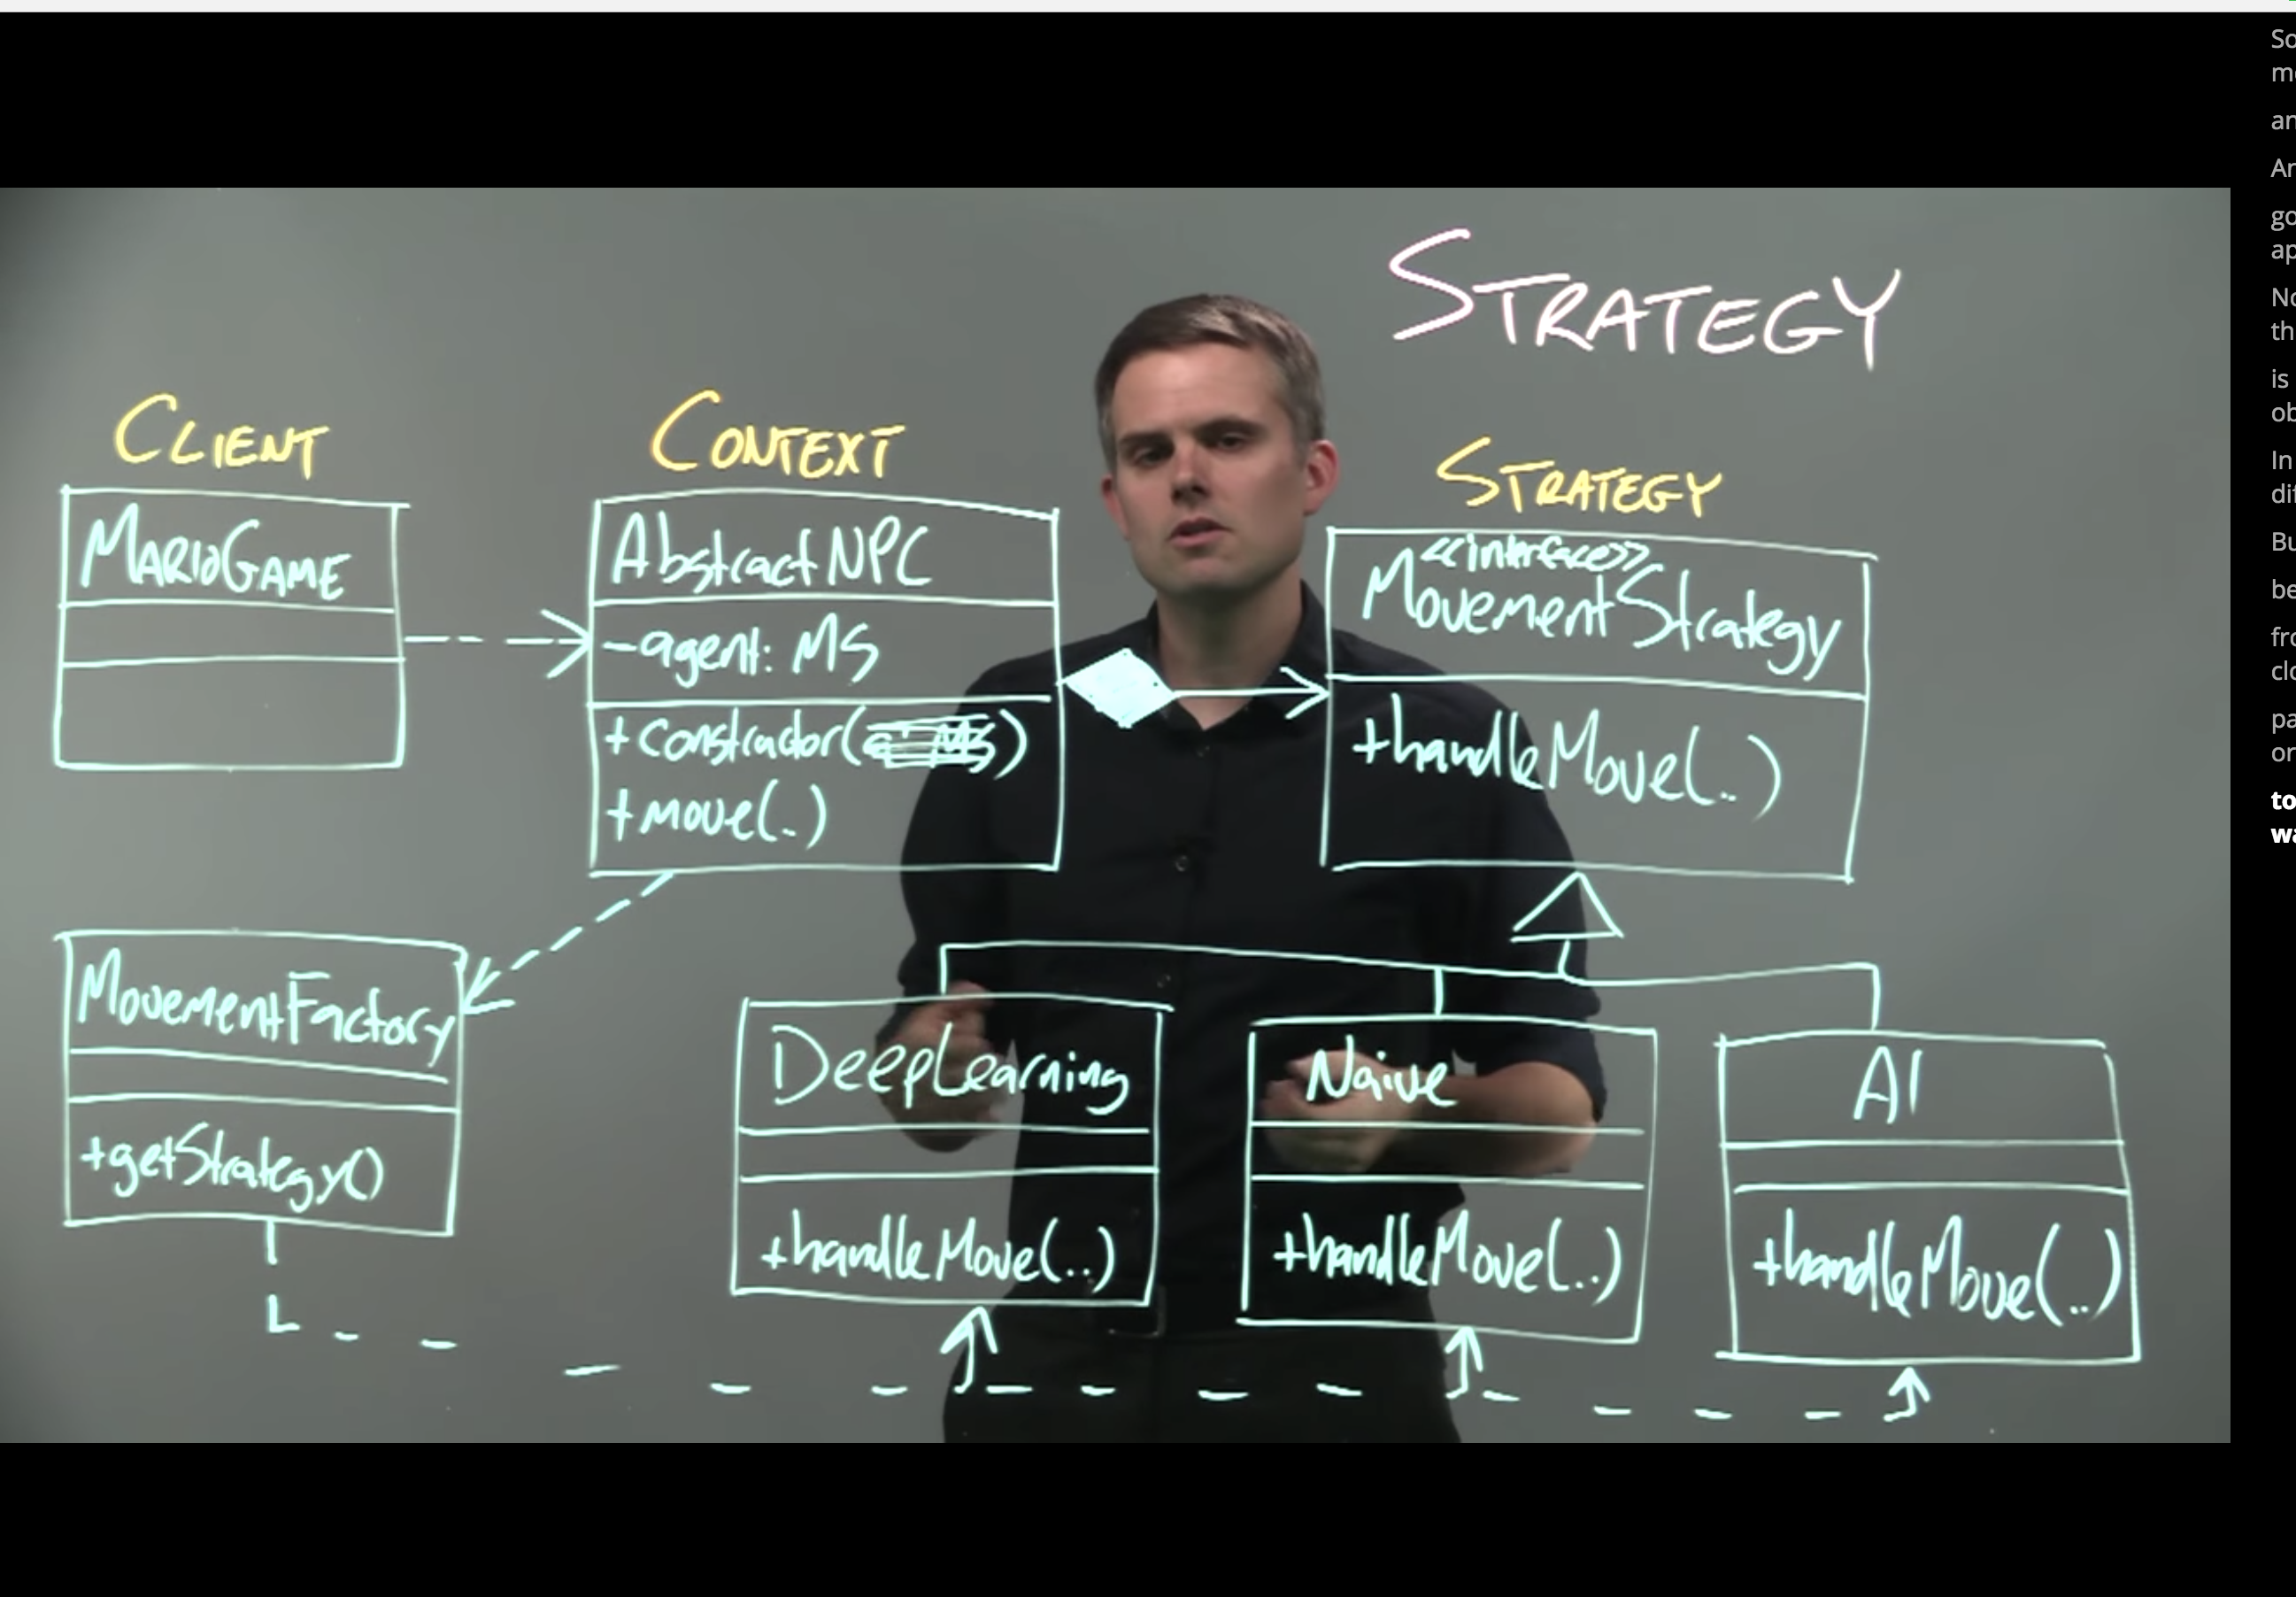 STRATEGY
CLIENT
MARIOGAME
CONTEXT
AbstractNPC
-agent: MS
+constructor( )
+move(..)
STRATEGY
<<interface>>
MovementStrategy
+handleMove(..)
MovementFactory
+getStrategy()
DeepLearning
+handleMove(..)
Naive
+handleMove(..)
AI
+handleMove(..)
is
In
to